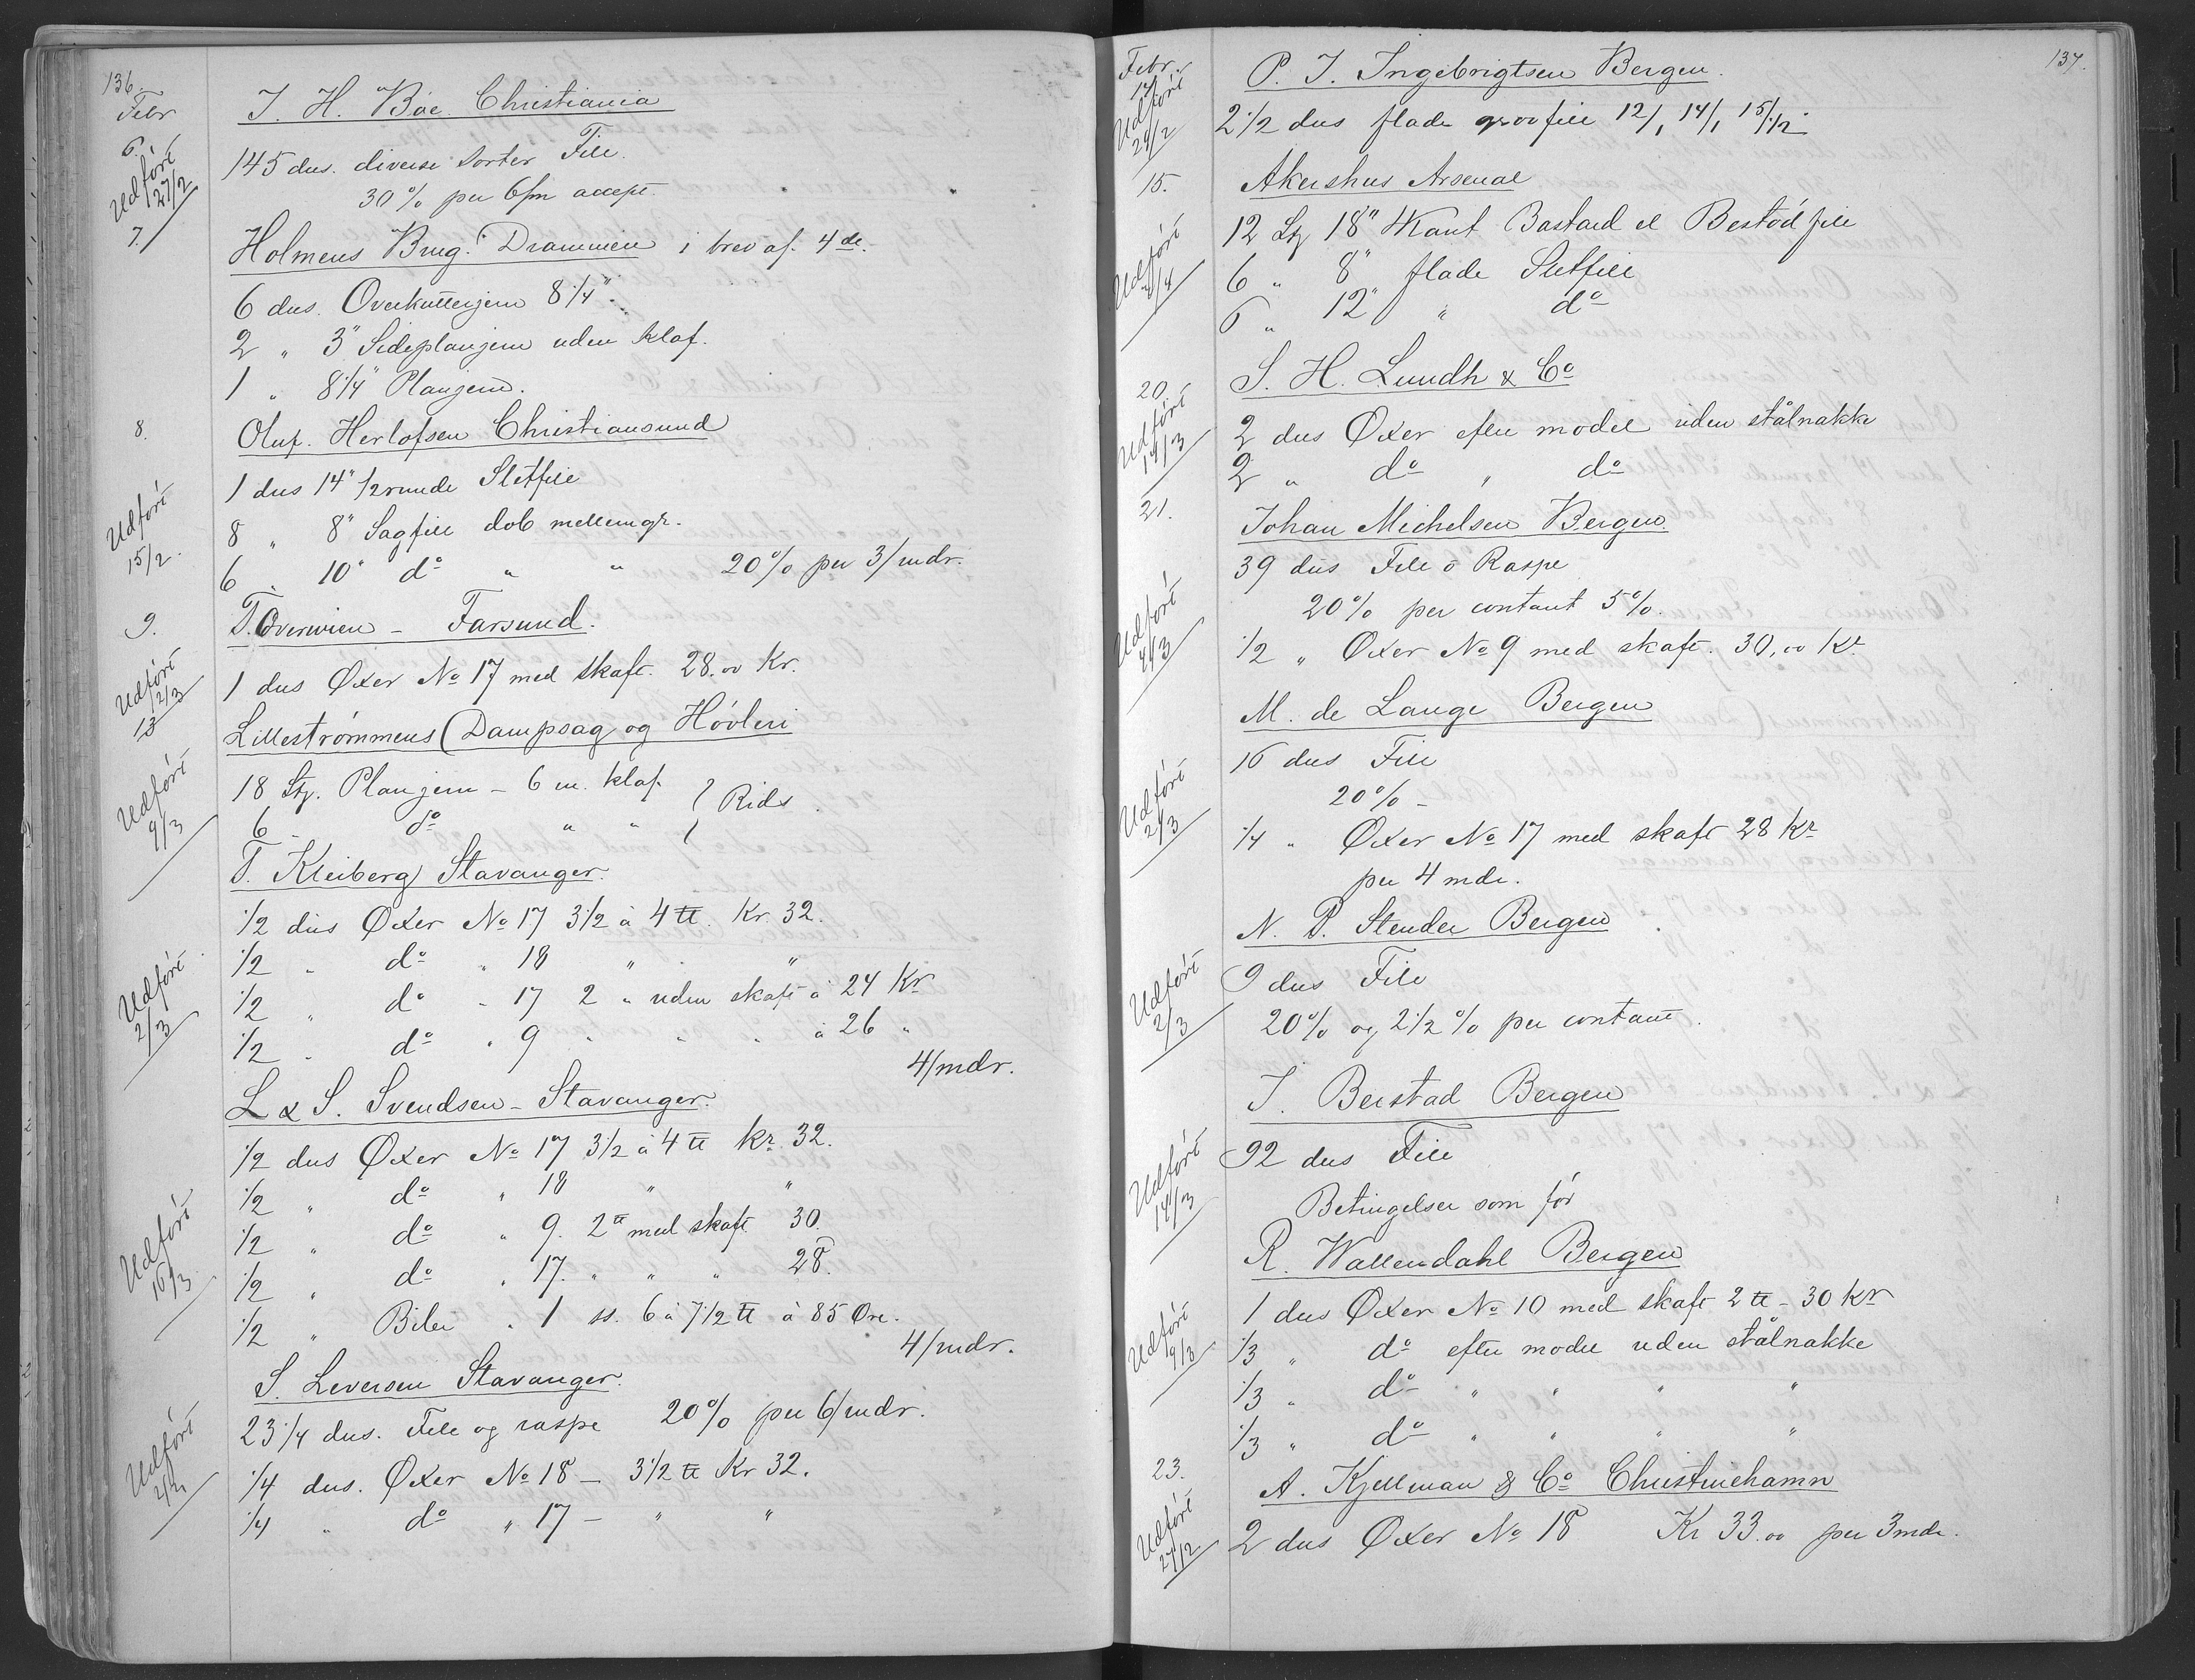 136.
Febr
6.
J. H. Böe Christiania
145 dus. diverse sorter File.
Udfört 27/2
30% per 6/m accept.
7.
Holmens Brug. Drammen i brev af 4de.
6 dus. Overkutterjern 8 1/4".
2 " 3" Sideplanjern uden klaf.
1 " 8 1/4" Planjern.
8.
Oluf. Herlofsen Christiansund
1 dus 14" 1/2 runde Sletfile
Udfört 15/2.
8 " 8" Sagfile dob mellemgr.
6 " 10" do " " 20% per 3/mdr.
9.
T. Overwien - Farsund.
Udfört 2/3
1 dus Öxer No 17 med skaft. 28.00 Kr.
13
Lilleströmmens Dampsag og Hövleri
Udfört 9/3
18 St. Planjern - 6 m. klaf. } Rids.
6 - do " "
T. Kleiberg Stavanger.
1/2 dus Öxer No 17 3 1/2 à 4 ℔. Kr. 32.
1/2 " do " 18 " "
Udfört 2/3
1/2 " do " 17 2 " uden skaft à 24 Kr
1/2 " do " 9 " " " à 26 "
4/mdr.
L & S. Svendsen - Stavanger.
1/2 dus Öxer No 17 3 1/2 à 4 ℔ kr. 32.
1/2 " do " 18 " "
Udfört 16/3
1/2 " do " 9. 2 ℔ med skaft 30.
1/2 " do " 17. " " " 28.
1/2 " Biler " 1 ss. 6 à 7 1/2 ℔ à 85 Öre.
4/mdr.
S. Leversen Stavanger.
23 1/4 dus. File og raspe 20% per 6/mdr.
Udfört
1/4 dus. Öxer No 18 - 3 1/2 ℔ Kr 32.
1/4 " do " 17 - " "
137.
Febr.
14
P. J. Ingebrigtsen Bergen.
Udfört 29/2
2 1/2 dus flade grovfile 12/1 14/1 15/1/2
15.
Akershus Arsenal
12 St 18" 4Kant Bastard el Bestöd file
Udfört
6 " 8" flade Sletfile
6 " 12" " do
20.
S. H. Lundh & Co
Udfört 14/3
2 dus Öxer efter model uden stålnakke
2 " do " do
21.
Johan Michelsen Bergen.
39 dus File o Raspe
Udfört
20% per contant 5%.
1/2 " Öxer No 9 med skaft. 30,00 Kr
M. de Lange Bergen
16 dus File
Udfört 2/3
20% -
1/4 " Öxer No 17 med skaft 28 Kr
per 4 mdr.
N. P. Stender Bergen
Udfört 2/3
9 dus File
20% og 2 1/2% per contant.
J. Beistad Bergen
Udfört 14/3
92 dus File
Betingelser som för
R. Wallendahl Bergen
Udfört 9/3
1 dus Öxer No 10 med skaft 2 ℔ - 30 Kr
1/3 " do efter model uden stålnakke
1/3 " do " " " "
1/3 " do " " " "
23.
A. Kjellman & Co Christinehamn
Udfört 27/2
2 dus Öxer No 18 Kr 33.00 per 3 mdr.